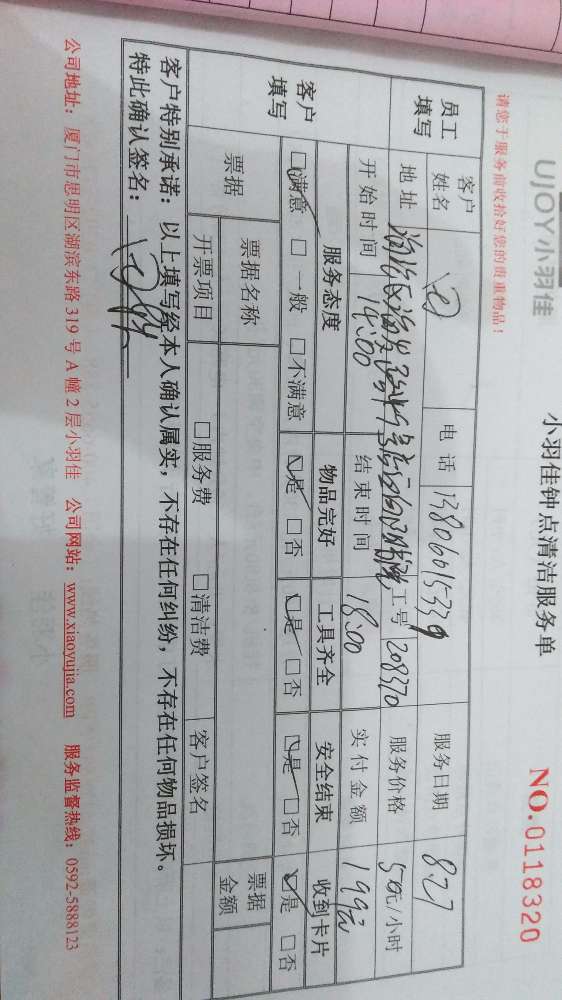 UJOY小羽佳
小羽佳钟点清洁服务单
NO.0118320
请您于服务前收拾好您的贵重物品！
员工填写
客户姓名 电话 13806015339 服务日期 8.27
地址 工号 208370 服务价格 元/小时
开始时间 14:00 结束时间 18:00 实付金额 199
客户填写
服务态度 物品完好 工具齐全 安全结束 收到卡片
☑满意 □一般 □不满意 ☑是 □否 ☑是 □否 ☑是 □否 ☑是 □否
票据 票据名称 票据金额
开票项目 □服务费 □清洁费 客户签名
客户特别承诺：以上填写经本人确认属实，不存在任何纠纷，不存在任何物品损坏。
特此确认签名：
公司地址：厦门市思明区湖滨东路 319 号 A 幢 2 层小羽佳 公司网站：www.xiaoyujia.com 服务监督热线：0592-5888123